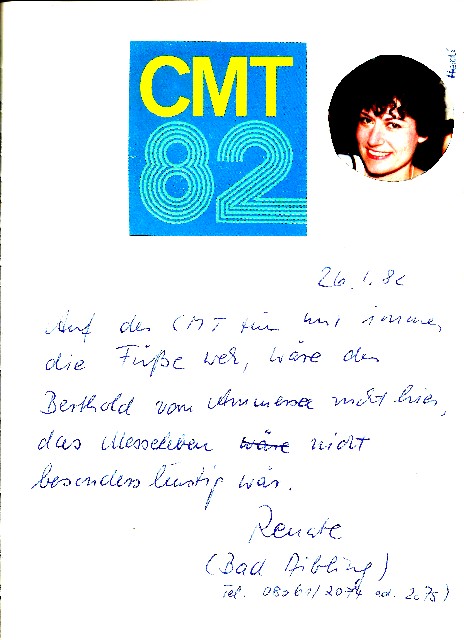 CMT
82
26.1.82
Auf der CMT tun mir immer
die Füße weh, wäre der
Berthold vom Ammersee nicht hier,
das Messeleben wäre nicht
besonders lustig wär.
Renate
(Bad Aibling)
Tel. 08061/2074 od. 2075)